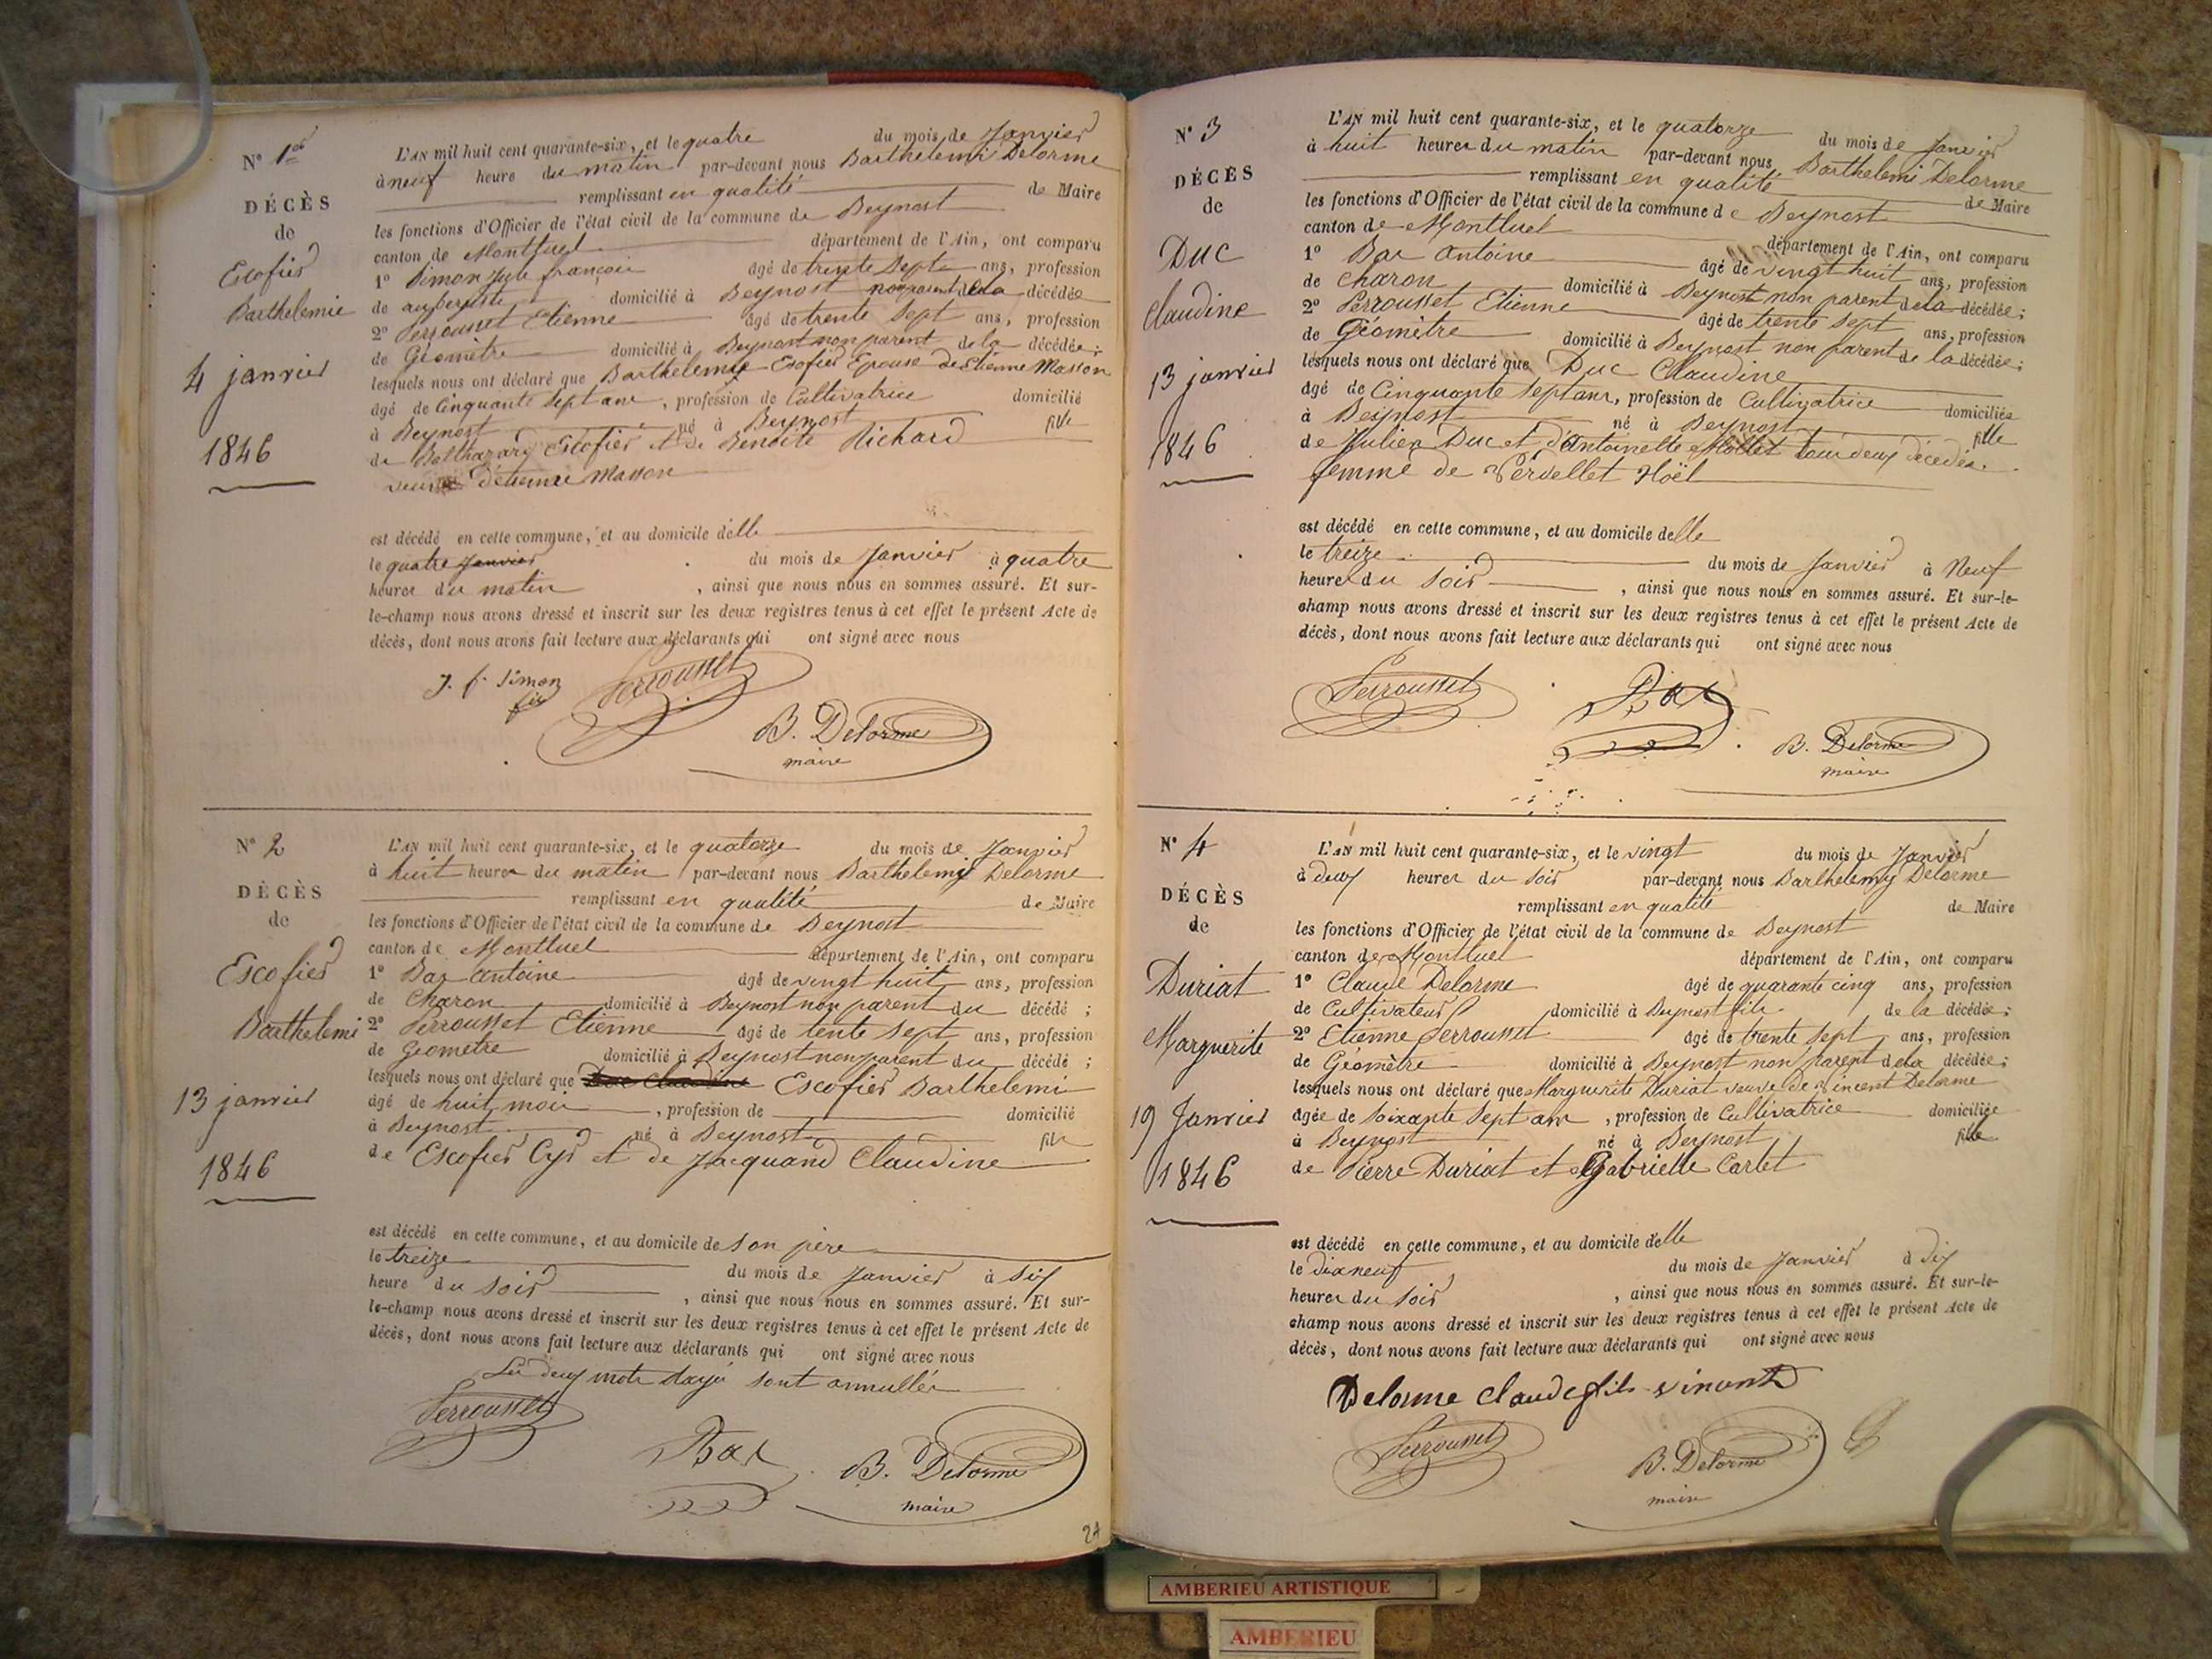 N° 1er
DÉCÈS
de
Escofier
Barthelemie
4 janvier
1846
L'AN mil huit cent quarante-six, et le quatre du mois de Janvier
à neuf heure du matin par-devant nous Barthelemi Delorme
remplissant en qualité de Maire
les fonctions d'Officier de l'état civil de la commune de Beynost
canton de Montluel département de l'Ain, ont comparu
1° Simon françois âgé de trente Sept ans, profession
de aubergiste domicilié à Beynost non parent de la décédée
2° Perrousset Etienne âgé de trente Sept ans, profession
de Géomètre domicilié à Beynost non parent de la décédée;
lesquels nous ont déclaré que Barthelemie Escofier Epouse de Etienne Masson
âgé de Cinquante Sept ans, profession de Cultivatrice domicilié
à Beynost né à Beynost fille
de Balthazard Escofier et de Benoite Richard
d'étienne Masson
est décédé en cette commune, et au domicile d'elle
le quatre Janvier du mois de Janvier à quatre
heures du matin, ainsi que nous nous en sommes assuré. Et sur-
le-champ nous avons dressé et inscrit sur les deux registres tenus à cet effet le présent Acte de
décès, dont nous avons fait lecture aux déclarants qui ont signé avec nous
J. f. Simon
fils
Perrousset
B. Delorme
maire
N° 2
DÉCÈS
de
Escofier
Barthelemi
13 janvier
1846
L'AN mil huit cent quarante-six, et le quatorze du mois de Janvier
à huit heures du matin par-devant nous Barthelemy Delorme
remplissant en qualité de Maire
les fonctions d'Officier de l'état civil de la commune de Beynost
canton de Montluel département de l'Ain, ont comparu
1° Bar Antoine âgé de vingt huit ans, profession
de Charon domicilié à Beynost non parent du décédé;
2° Perrousset Etienne âgé de tente Sept ans, profession
de Géometre domicilié à Beynost non parent du décédé;
lesquels nous ont déclaré que Duc Claudine Escofier Barthelemi
âgé de huit mois, profession de domicilié
à Beynost né à Beynost fils
de Escofier Cyr et de Jacquand Claudine
est décédé en cette commune, et au domicile de son père
le treize du mois de Janvier à Six
heure du soir, ainsi que nous nous en sommes assuré. Et sur-
le-champ nous avons dressé et inscrit sur les deux registres tenus à cet effet le présent Acte de
décès, dont nous avons fait lecture aux déclarants qui ont signé avec nous
Les deux mots rayés sont annullés
Perrousset
Bar
B. Delorme
maire
24
N° 3
DÉCÈS
de
Duc
Claudine
13 janvier
1846
L'AN mil huit cent quarante-six, et le quatorze du mois de Janvier
à huit heures du matin par-devant nous Barthelemi Delorme
remplissant en qualité de Maire
les fonctions d'Officier de l'état civil de la commune de Beynost
canton de Montluel département de l'Ain, ont comparu
1° Bar Antoine âgé de vingt huit ans, profession
de Charon domicilié à Beynost non parent de la décédée;
2° Perrousset Etienne âgé de trente Sept ans, profession
de Géomètre domicilié à Beynost non parent de la décédée;
lesquels nous ont déclaré que Duc Claudine
âgé de Cinquante Sept ans, profession de Cultivatrice domiciliée
à Beynost né à Beynost fille
de Julien Duc et d'Antoinette Mollet tous deux décédés.
femme de Pervellet Noël
est décédé en cette commune, et au domicile delle
le treize du mois de Janvier à Neuf
heures du Soir, ainsi que nous nous en sommes assuré. Et sur-le-
champ nous avons dressé et inscrit sur les deux registres tenus à cet effet le présent Acte de
décès, dont nous avons fait lecture aux déclarants qui ont signé avec nous
Perrousset
Bar
B. Delorme
maire
N° 4
DÉCÈS
de
Duriat
Marguerite
19 Janvier
1846
L'AN mil huit cent quarante-six, et le vingt du mois de Janvier
à deux heures du soir par-devant nous Barthelemy Delorme
remplissant en qualité de Maire
les fonctions d'Officier de l'état civil de la commune de Beynost
canton de Montluel département de l'Ain, ont comparu
1° Claude Delorme âgé de quarante cinq ans, profession
de Cultivateur domicilié à Beynost fils de la décédée;
2° Etienne Perrousset âgé de trente Sept ans, profession
de Géomètre domicilié à Beynost non parent de la décédée;
lesquels nous ont déclaré que Marguerite Duriat veuve de Vincent Delorme
agée de Soixante Sept ans, profession de Cultivatrice domiciliée
à Beynost né à Beynost fille
de Pierre Duriat et Gabrielle Cartet
est décédé en cette commune, et au domicile d'elle
le dixneuf du mois de Janvier à Dix
heures du Soir, ainsi que nous nous en sommes assuré. Et sur-le-
champ nous avons dressé et inscrit sur les deux registres tenus à cet effet le présent Acte de
décès, dont nous avons fait lecture aux déclarants qui ont signé avec nous
Delorme Claude fils
Perrousset
B. Delorme
maire
AMBERIEU ARTISTIQUE
AMBERIEU